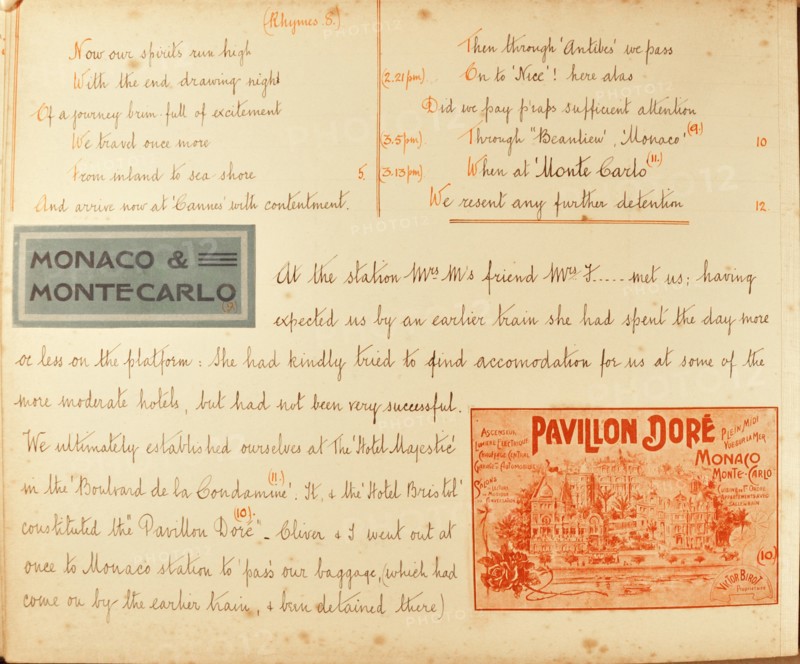 (Rhymes. 8.)
Now our spirits run high
With the end drawing nigh
Of a journey brim full of excitement
We travel once more
From inland to sea shore 5.
And arrive now at 'Cannes' with contentment.
Then through 'Antibes' we pass
(2.21pm) On to 'Nice'! here alas
Did we pay p'raps sufficient attention
(3.5pm) Through "Beaulieu', 'Monaco' (9.) 10
(3.13pm) When at 'Monte Carlo' (11.)
We resent any further detention 12.
MONACO &
MONTE-CARLO
(9.)
At the station Mrs M's friend Mrs T..... met us; having
expected us by an earlier train she had spent the day more
or less on the platform: She had kindly tried to find accomodation for us at some of the
more moderate hotels, but had not been very successful.
We ultimately established ourselves at The 'Hotel Majestic'
in the 'Boulvard de la Condamine'. (11.) It, & the 'Hotel Bristol'
constituted the "Pavillon Doré" (10). - Cliver & I went out at
once to Monaco station to 'pass' our baggage, (which had
come on by the earlier train, & been detained there)
ASCENSEUR
LUMIÈRE ELECTRIQUE
CHAUFFAGE CENTRAL
GARAGE D'AUTOMOBILES
SALONS
DE LECTURE
DE MUSIQUE
PAVILLON DORÉ
PLEIN MIDI
VUE SUR LA MER
MONACO
MONTE-CARLO
CUISINE DE 1ER ORDRE
APPARTEMENTS AVEC
SALLE DE BAIN
(10)
VICTOR BIROT
PROPRIETAIRE
PHOTO12